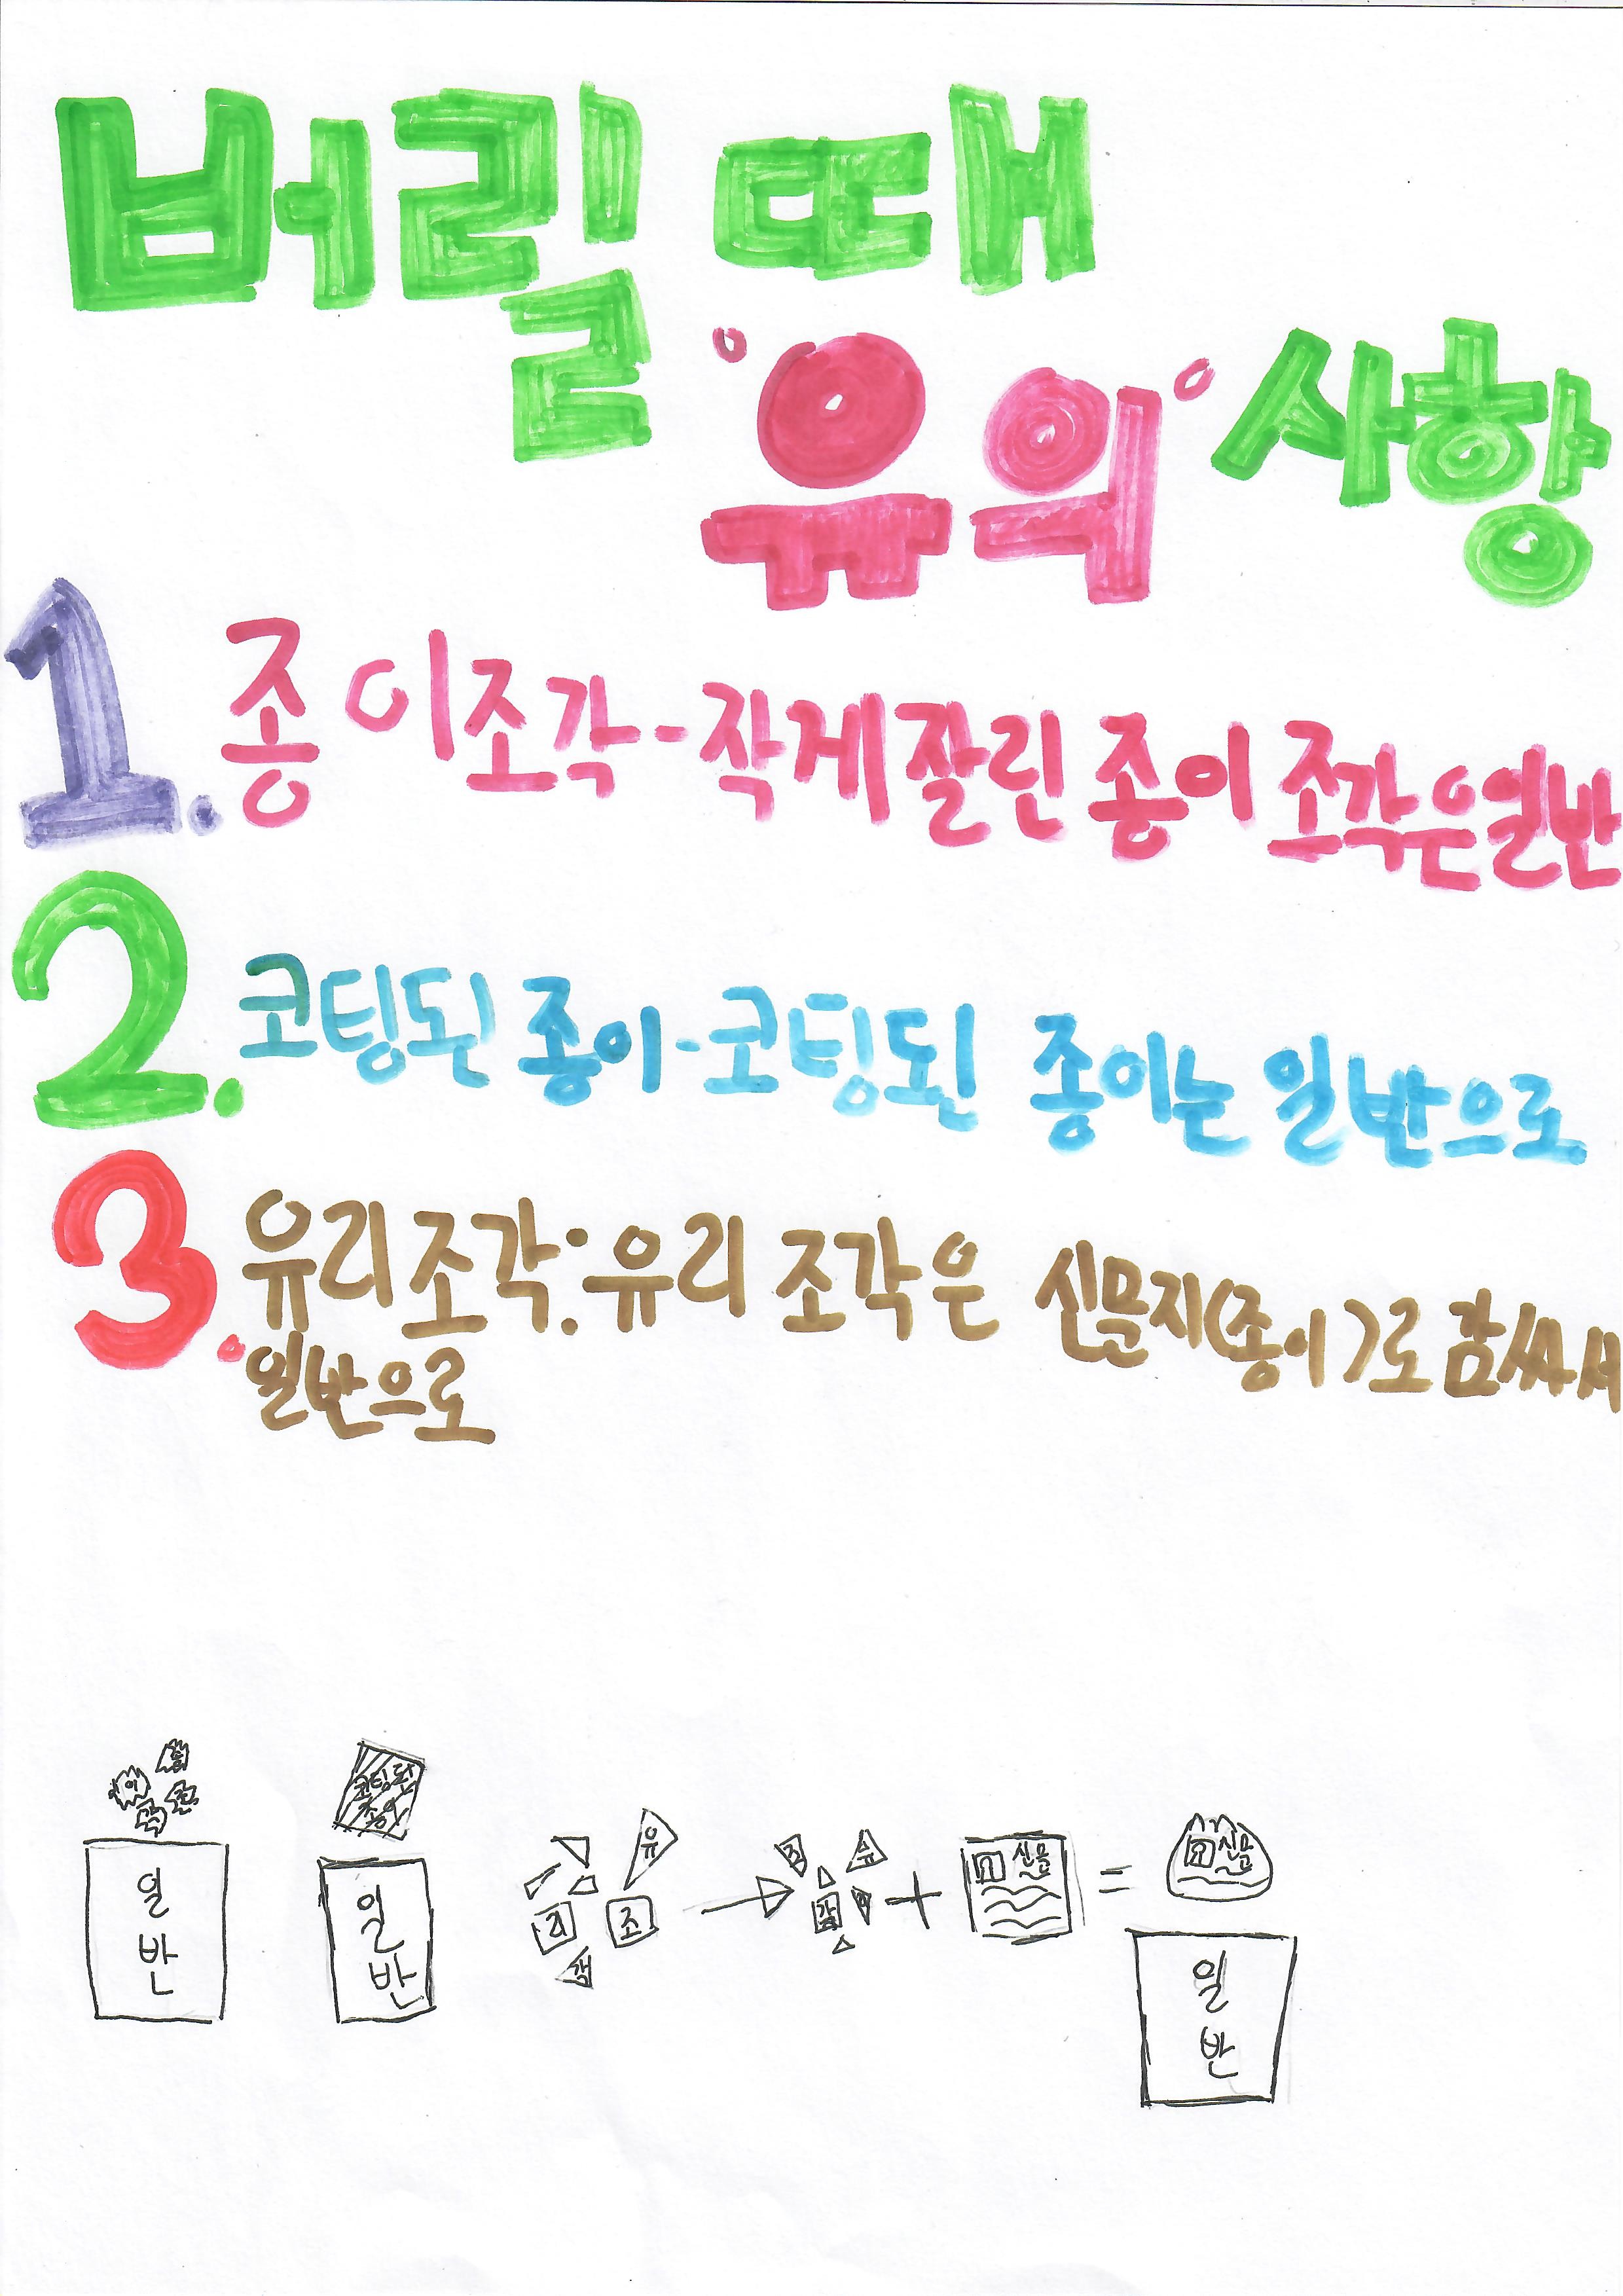 버릴 때
유의 사항
1. 종이조각-작게 잘린 종이 조각은일반
2. 코팅된 종이-코팅된 종이는 일반으로
3. 유리조각:유리 조각은 신문지(종이)로 감싸서
일반으로
종
이
조
각
일
반
코팅된
종이
일
반
유
리
조
각
신문
신문
일
반